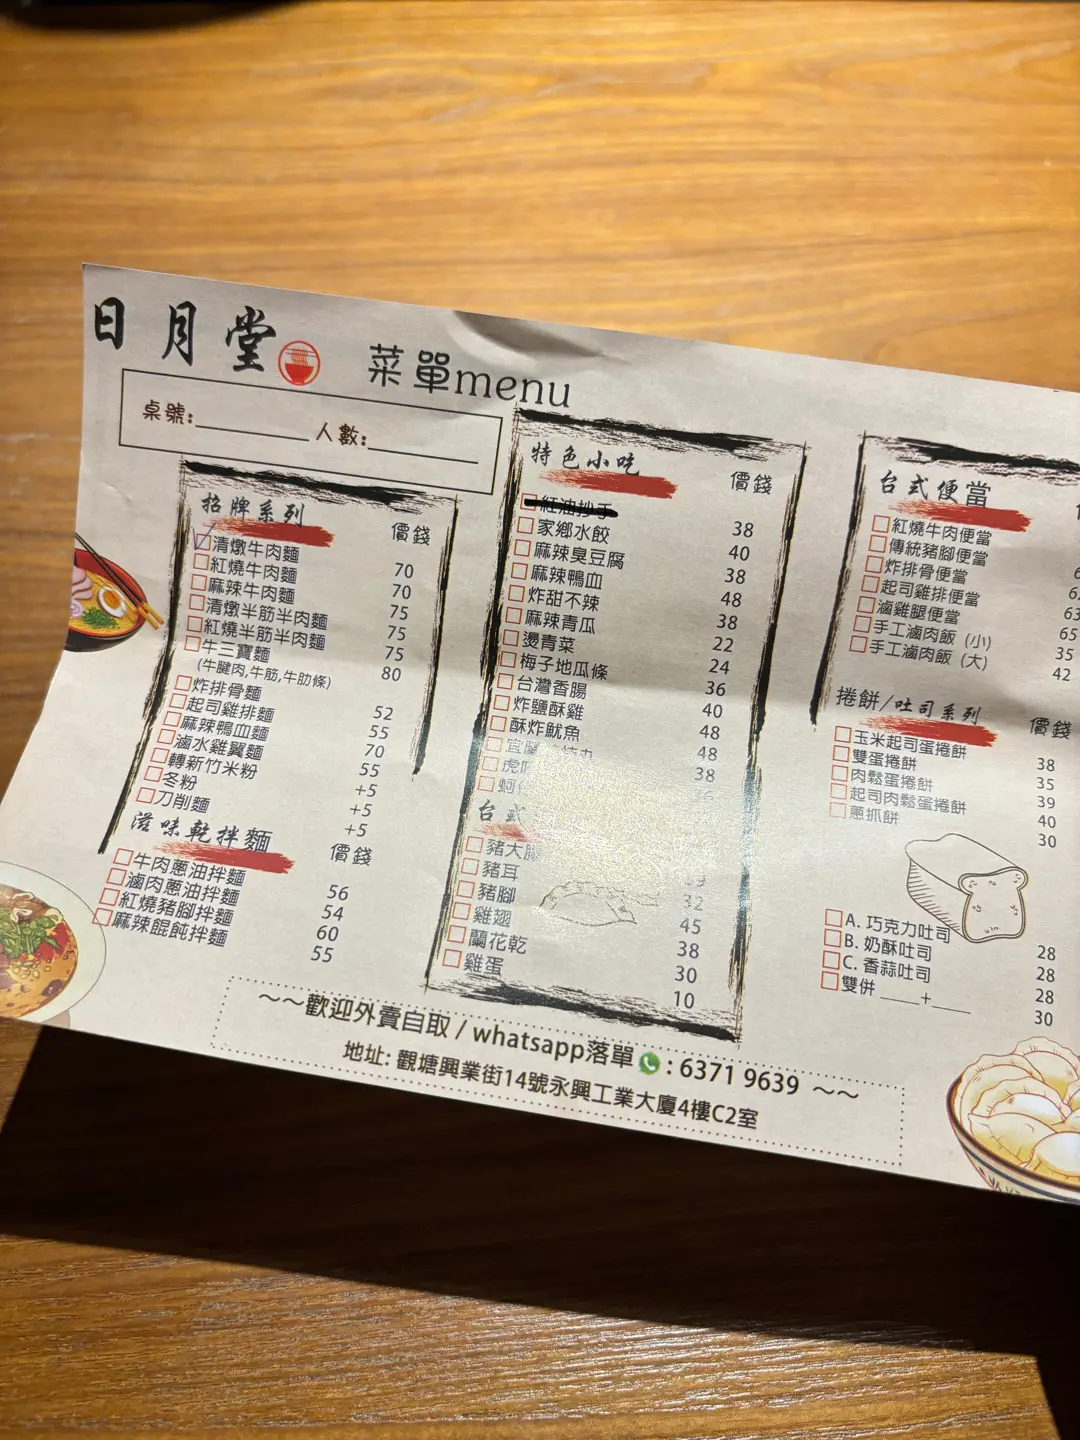 日月堂 菜單menu
桌號:________ 人數:________
招牌系列 價錢
清燉牛肉麵 70
紅燒牛肉麵 70
麻辣牛肉麵 75
清燉半筋半肉麵 75
紅燒半筋半肉麵 75
牛三寶麵 80
(牛腱肉,牛筋,牛肋條)
炸排骨麵 52
起司雞排麵 55
麻辣鴨血麵 70
滷水雞翼麵 55
轉新竹米粉 +5
冬粉 +5
刀削麵 +5
滋味乾拌麵 價錢
牛肉蔥油拌麵 56
滷肉蔥油拌麵 54
紅燒豬腳拌麵 60
麻辣餛飩拌麵 55
特色小吃 價錢
紅油抄手 38
家鄉水餃 40
麻辣臭豆腐 38
麻辣鴨血 48
炸甜不辣 38
麻辣青瓜 22
燙青菜 24
梅子地瓜條 36
台灣香腸 40
炸鹽酥雞 48
酥炸魷魚 48
宜蘭 38
台式
豬大腸
豬耳 32
豬腳 45
雞翅 38
蘭花乾 30
雞蛋 10
台式便當
紅燒牛肉便當
傳統豬腳便當
炸排骨便當
起司雞排便當 63
滷雞腿便當 65
手工滷肉飯 (小) 35
手工滷肉飯 (大) 42
捲餅/吐司系列 價錢
玉米起司蛋捲餅 38
雙蛋捲餅 35
肉鬆蛋捲餅 39
起司肉鬆蛋捲餅 40
蔥抓餅 30
A. 巧克力吐司 28
B. 奶酥吐司 28
C. 香蒜吐司 28
雙併 ____+____ 30
～～歡迎外賣自取 / whatsapp落單 : 6371 9639 ～～
地址: 觀塘興業街14號永興工業大廈4樓C2室